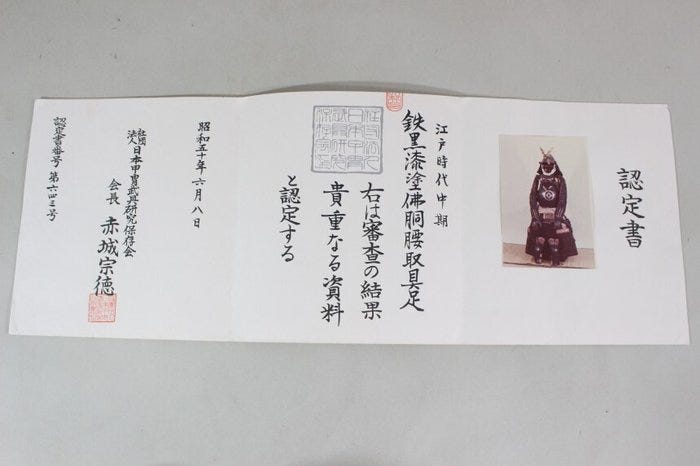 認定書
江戸時代中期
鉄黒漆塗佛胴腰取具足
右は審査の結果
貴重なる資料
と認定する
昭和五十年六月八日
社団法人日本甲冑武具研究保存会
会長 赤城宗徳
認定書番号 第六四三号